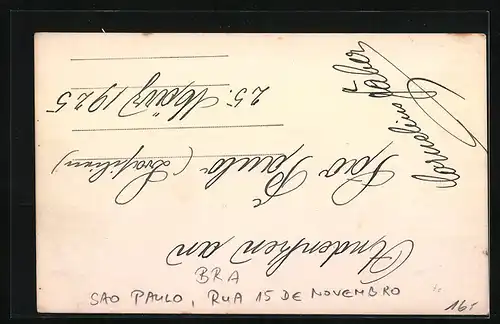 Andenken an
São Paulo (Brasilien)
25. März 1925
Cornelius Faber
BRA
SAO PAULO, RUA 15 DE NOVEMBRO
16,-